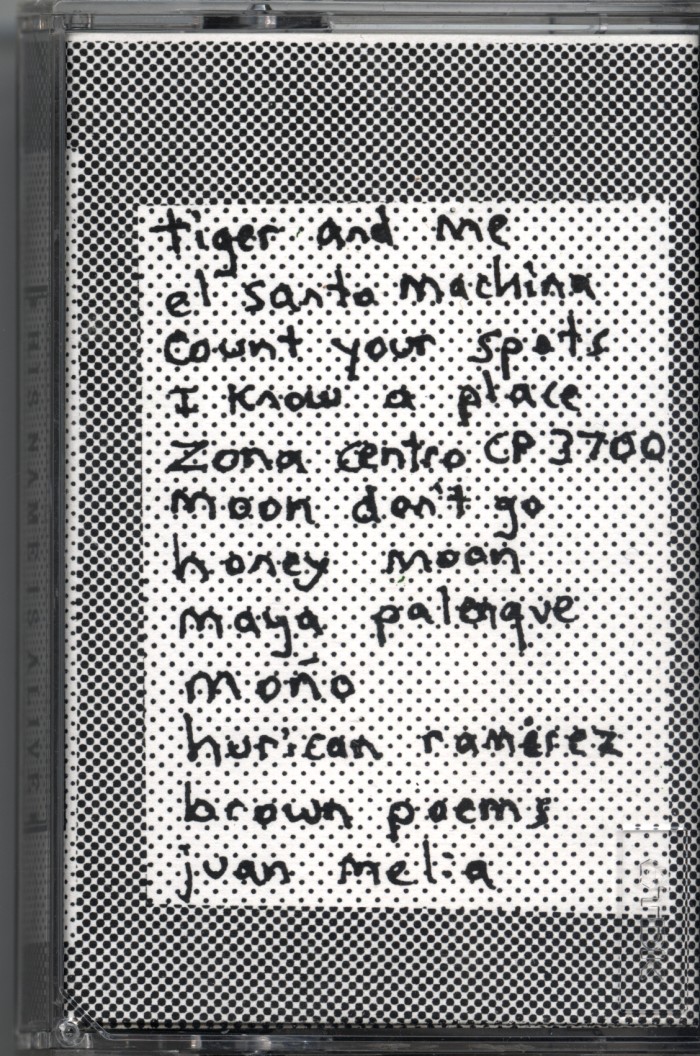 tiger and me
el santo machina
count your spots
I know a place
Zona centro CP 3700
moon don't go
honey moon
maya palenque
moño
hurican ramírez
brown poems
juan melia
HIS NAME IS ALIVE